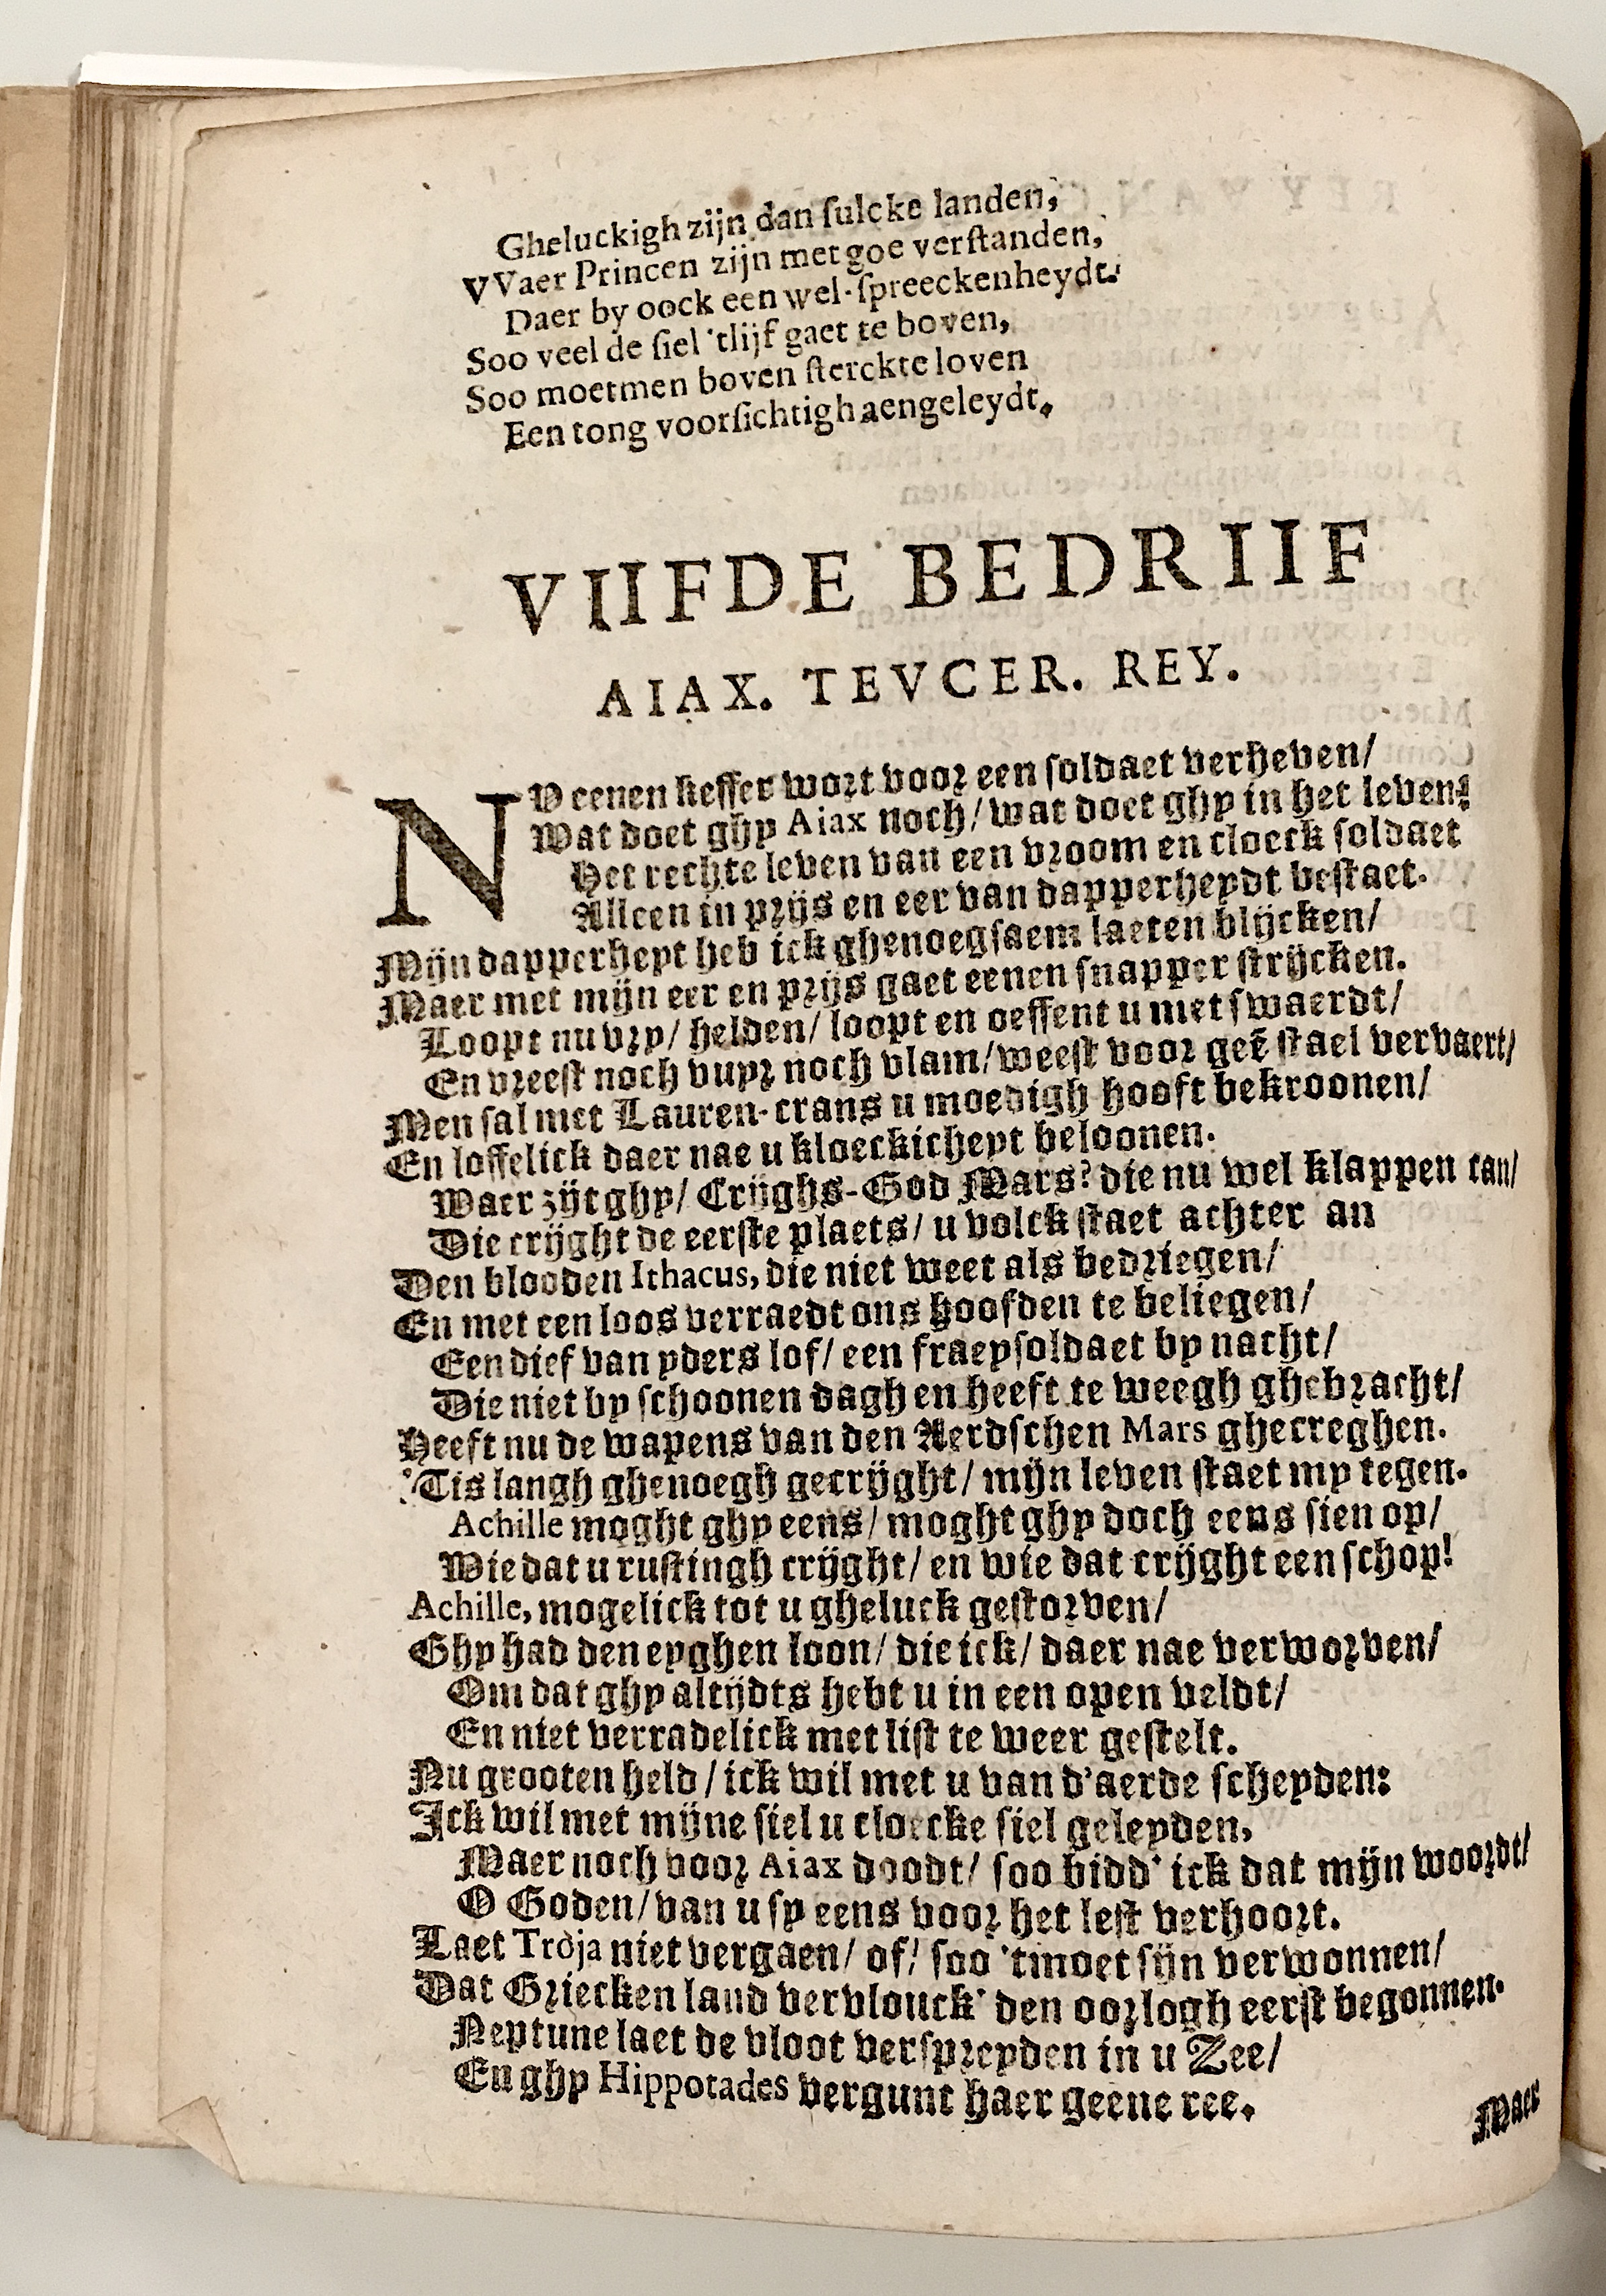 Gheluckigh zijn dan ſulcke landen,
VVaer Princen zijn met goe verſtanden,
Daer by oock een wel-ſpreeckenheydt.
Soo veel de ſiel 'tlijf gaet te boven,
Soo moetmen boven ſterckte loven
Een tong voorſichtigh aengeleydt.
VIIFDE BEDRIIF
AIAX. TEVCER. REY.
NV eenen keffer wort voor een ſoldaet verheven/
Wat doet ghy Aiax noch/ wat doet ghy in het leven?
Het rechte leven van een vroom en cloeck ſoldaet
Alleen in prijs en eer van dapperheydt beſtaet.
Mijn dapperheyt heb ick ghenoegſaem laeten blijcken/
Maer met mijn eer en prijs gaet eenen ſnapper ſtrijcken.
Loopt nu vry/ helden/ loopt en oeffent u met ſwaerdt/
En vreeſt noch vuyr noch vlam/ weeſt voor geẽ ſtael vervaert/
Men ſal met Lauren-crans u moedigh hooft bekroonen/
En loffelick daer nae u kloeckicheyt beloonen.
Waer zijt ghy/ Crijghs-God Mars? die nu wel klappen can/
Die crijght de eerſte plaets/ u volck ſtaet achter an
Den blooden Ithacus, die niet weet als bedriegen/
En met een loos verraedt ons hoofden te beliegen/
Een dief van yders lof/ een fraey ſoldaet by nacht/
Die niet by ſchoonen dagh en heeft te weegh ghebracht/
Heeft nu de wapens van den Aerdſchen Mars ghecreghen.
'Tis langh ghenoegh gecrijght/ mijn leven ſtaet my tegen.
Achille moght ghy eens/ moght ghy doch eens ſien op/
Wie dat u ruſtingh crijght/ en wie dat crijght een ſchop!
Achille, mogelick tot u gheluck geſtorven/
Ghy had den eyghen loon/ die ick/ daer nae verworven/
Om dat ghy altijdts hebt u in een open veldt/
En niet verradelick met liſt te weer geſtelt.
Nu grooten held/ ick wil met u van d'aerde ſcheyden:
Ick wil met mijne ſiel u cloecke ſiel geleyden,
Maer noch voor Aiax doodt/ ſoo bidd' ick dat mijn woordt/
O Goden/ van u ſy eens voor het leſt verhoort.
Laet Troja niet vergaen/ of/ ſoo 'tmoet ſijn verwonnen/
Dat Griecken land vervlouck' den oorlogh eerſt begonnen.
Neptune laet de vloot verſpreyden in u Zee/
En ghy Hippotades vergunt haer geene ree.
Maer